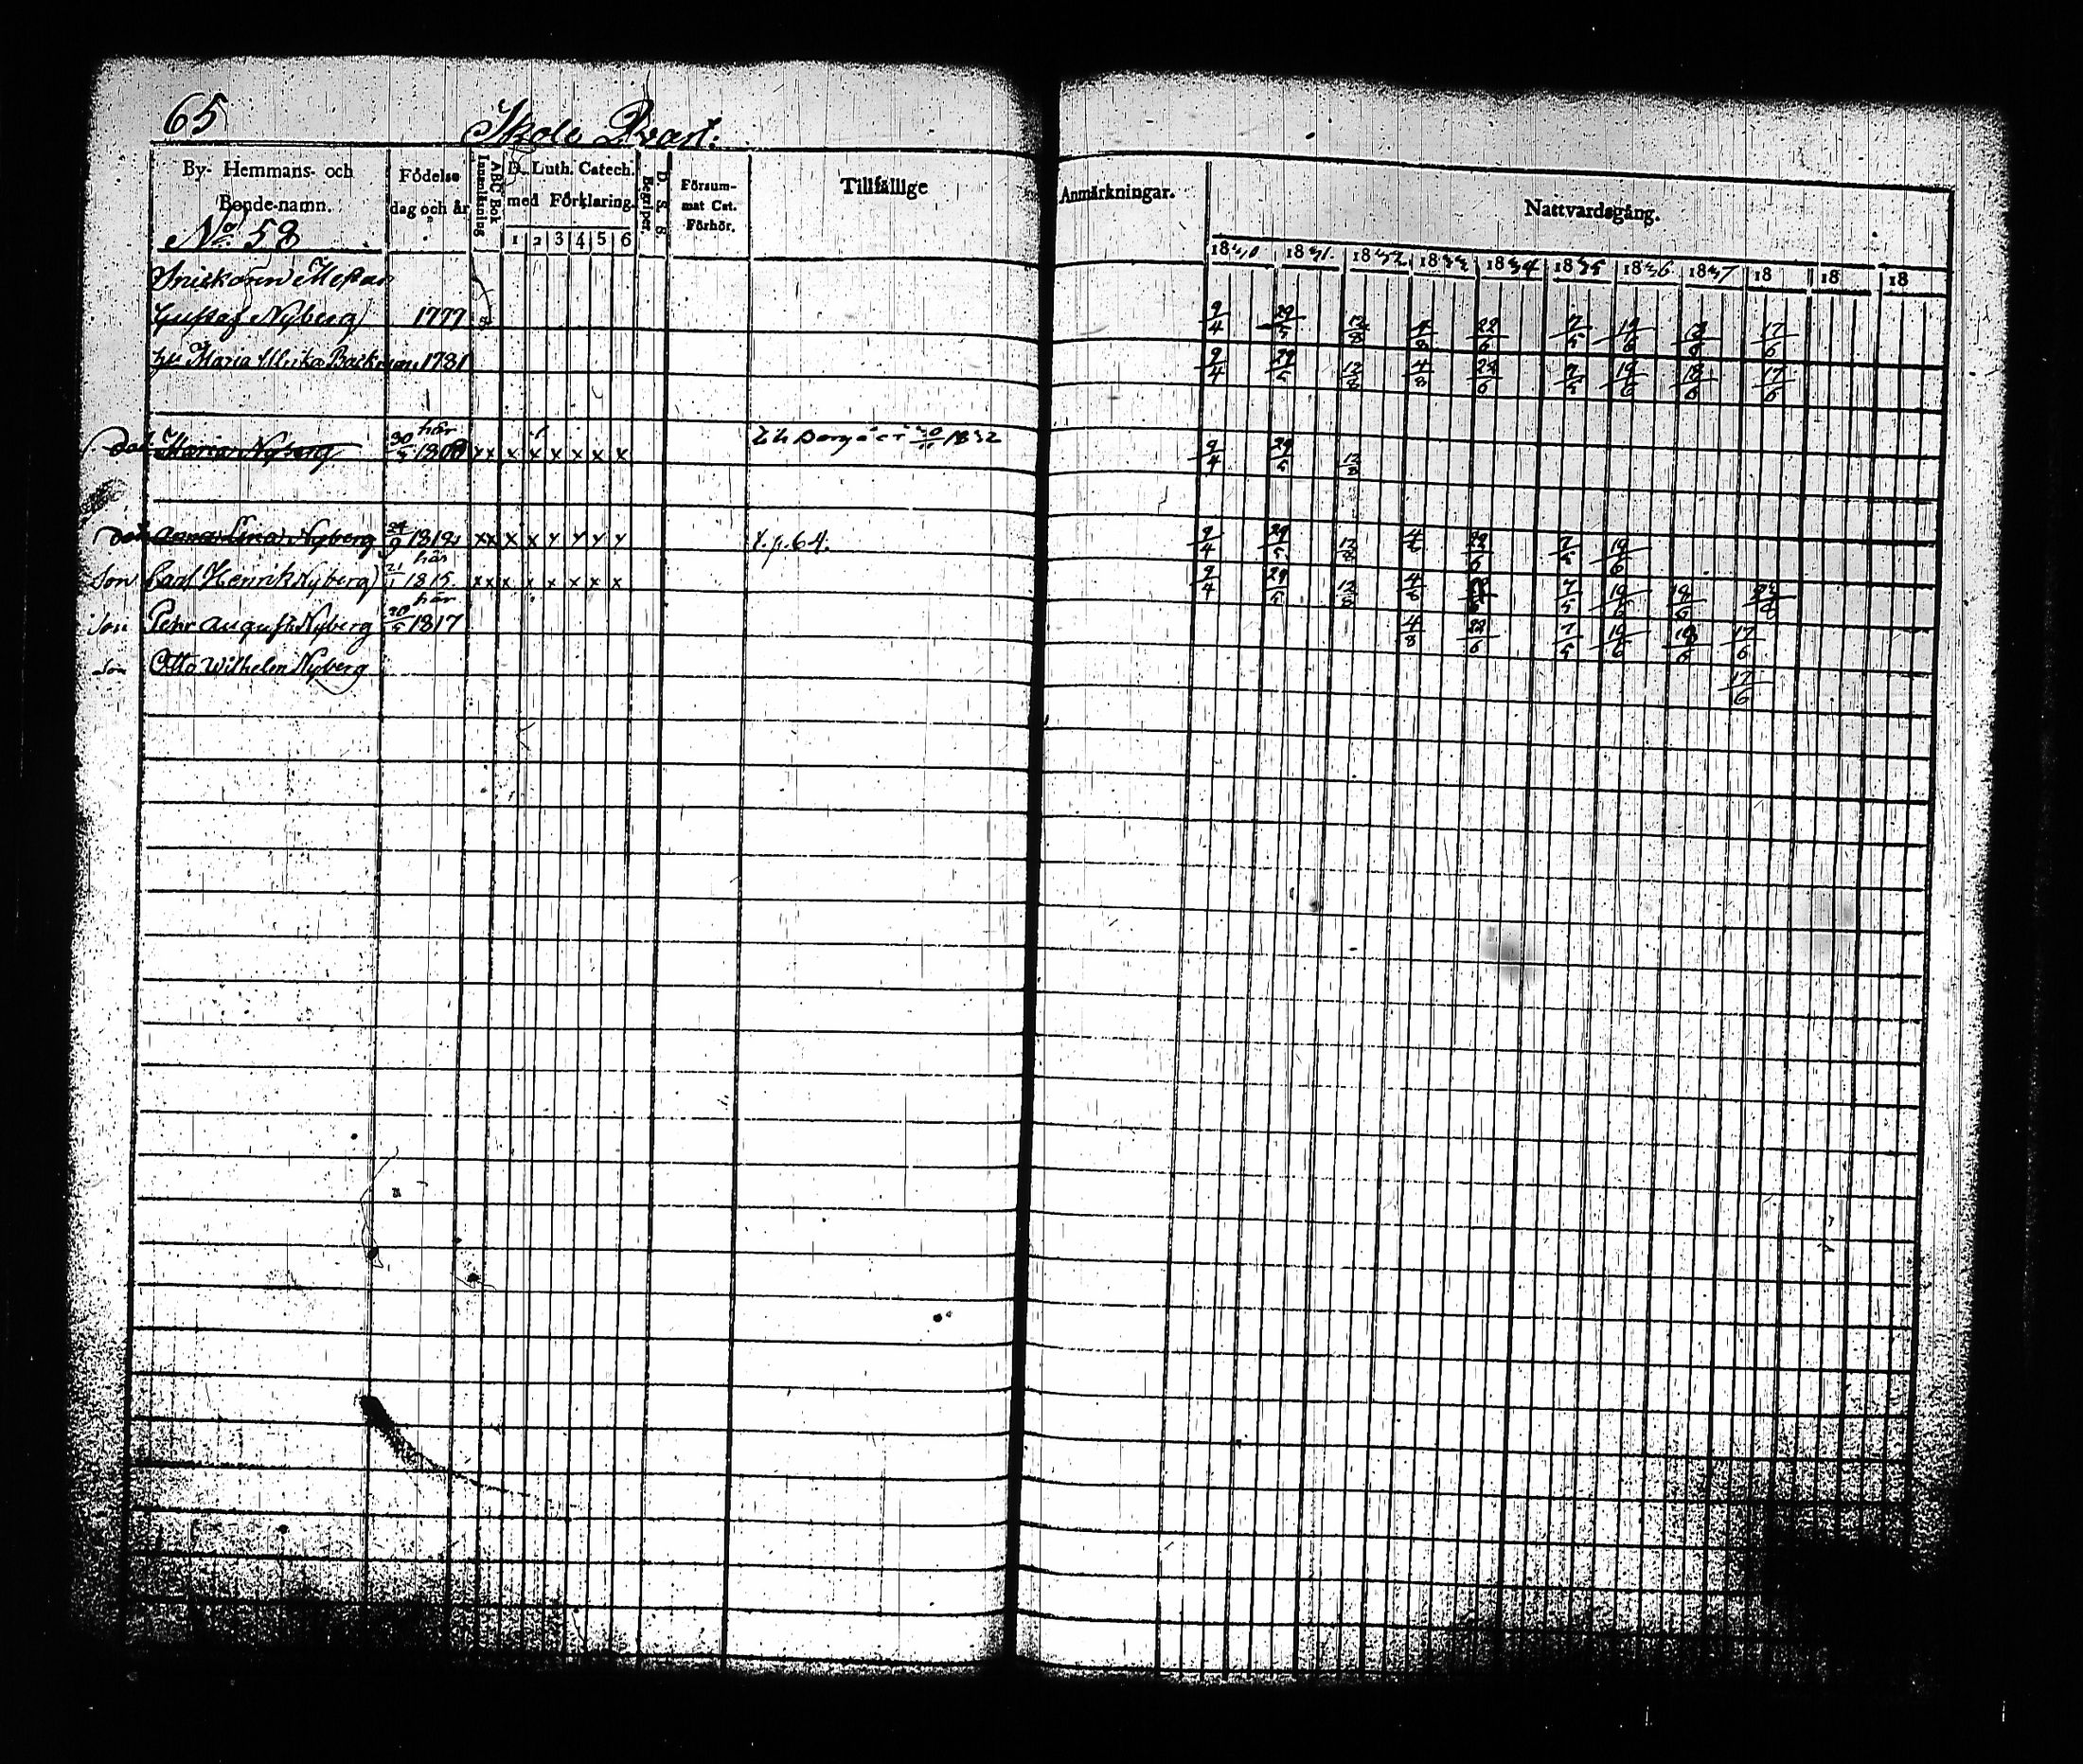 65
Skole Qvart:
By- Hemmans- och Bonde-namn.
Födelse dag och år
ABC Bok Innanläsning
D. Luth. Catech. med Förklaring.
1 2 3 4 5 6
D. S. S. Begriper.
Försum- mat Cat. Förhör.
Tillfällige
Anmärkningar.
Nattvardsgång.
1830 1831. 1832 1833 1834 1835 1836 1837 18 18 18
No 58
Gustaf Nyberg 1777 9/4 29/5 12/8 4/8 22/6 7/5 19/6 18/6 17/6
hu Maria Ulrika Backman 1781 9/4 29/5 12/8 4/8 22/6 7/5 19/6 18/6 17/6
här
dot Maria Nyberg 30/5 x x x x x x x x 1832 9/4 29/5 12/8
dot Anna Lina Nyberg 24/9 1812 x x x x y y y y t.p. 64. 9/4 29/5 12/8 4/8 22/6 7/5 19/6
här
Son Carl Henrik Nyberg 21/1 1815. x x x x x x x x 9/4 29/5 12/8 4/8 7/5 19/6
här
Son Pehr August Nyberg 30/5 1817 4/8 22/6 7/5 19/6 18/6 17/6
Son Otto Wilhelm Nyberg 17/6